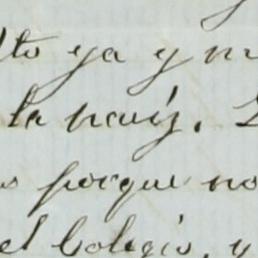 lto ya y m
la nariz.
s porque no
el Colegio, y